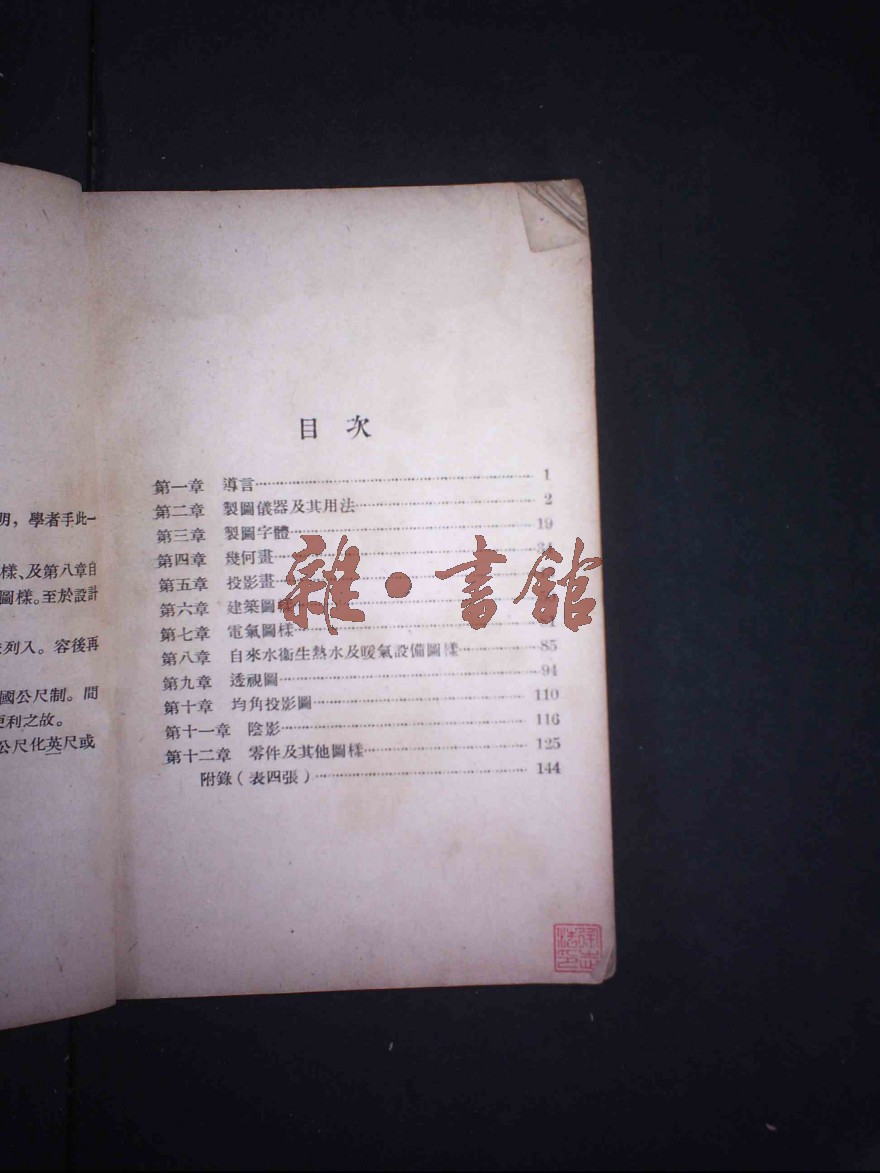 明，學者手此一
樣、及第八章自
圖樣。至於設計
列入。容後再
國公尺制。間
便利之故。
公尺化英尺或
目次
第一章 導言 1
第二章 製圖儀器及其用法 2
第三章 製圖字體 19
第四章 幾何畫
第五章 投影畫
第六章 建築圖樣
第七章 電氣圖樣
第八章 自來水衛生熱水及暖氣設備圖樣 85
第九章 透視圖 94
第十章 均角投影圖 110
第十一章 陰影 116
第十二章 零件及其他圖樣 125
附錄(表四張) 144
雜·書館